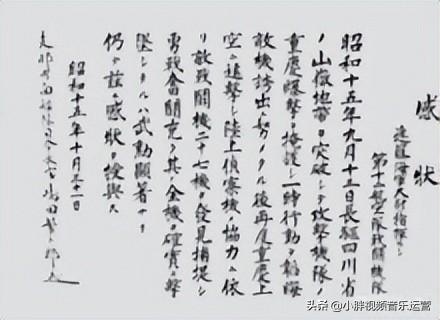 感状
進藤海軍大尉指揮セシ
第十二航空隊戦闘機隊
昭和十五年九月十三日長駆四川省
ノ山嶽地帯ヲ突破シテ攻撃機隊ノ
重慶爆撃ヲ掩護シ一時行動ヲ韜晦
敵機誘出ニ努メタル後再度重慶上
空ニ進撃シ陸上偵察機ノ協力ニ依
リ敵戦闘機二十七機ヲ発見捕捉シ
勇戦奮闘克ク其ノ全機ヲ確実ニ撃
墜シタルハ武勲顕著ナリ
仍テ茲ニ感状ヲ授與ス
昭和十五年十月三十一日
支那方面艦隊司令長官嶋田繁太郎
头条 @小胖视频音乐运营